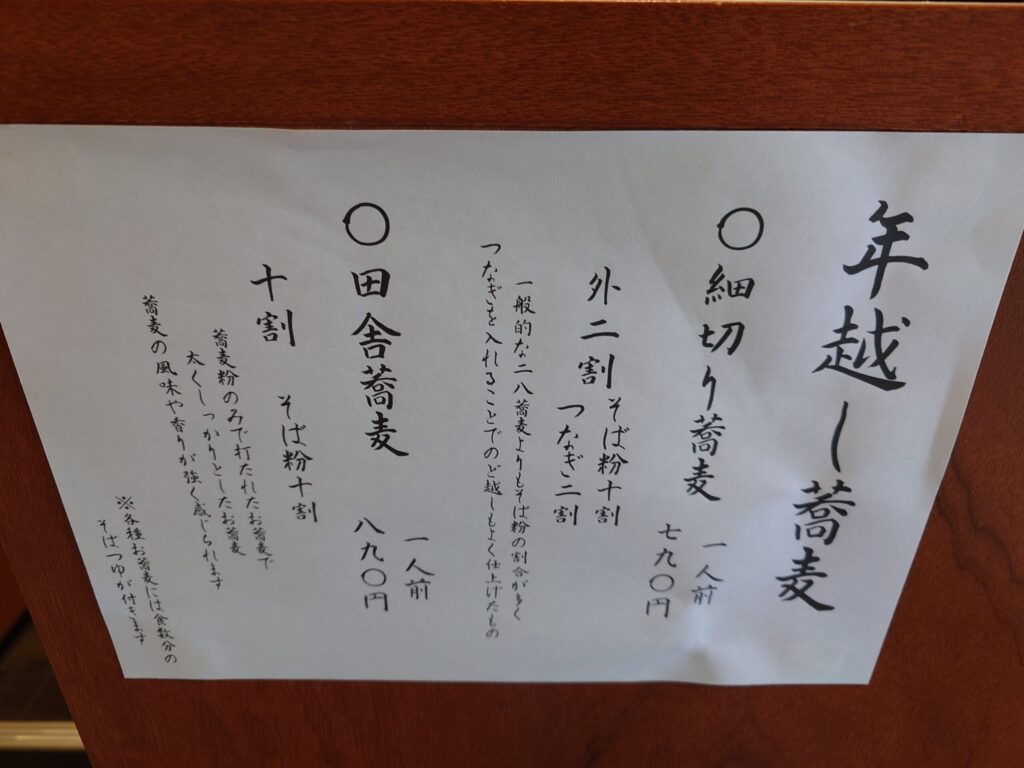 年越し蕎麦
○細切り蕎麦
一人前
七九〇円
外二割
そば粉十割
つなぎ二割
一般的な二八蕎麦よりもそば粉の割合が多く
つなぎを入れることでのど越しもよく仕上げたもの
○田舎蕎麦
一人前
八九〇円
十割
そば粉十割
蕎麦粉のみで打たれたお蕎麦で
太くしっかりとしたお蕎麦
蕎麦の風味や香りが強く感じられます
※各種お蕎麦には食数分の
そばつゆが付きます